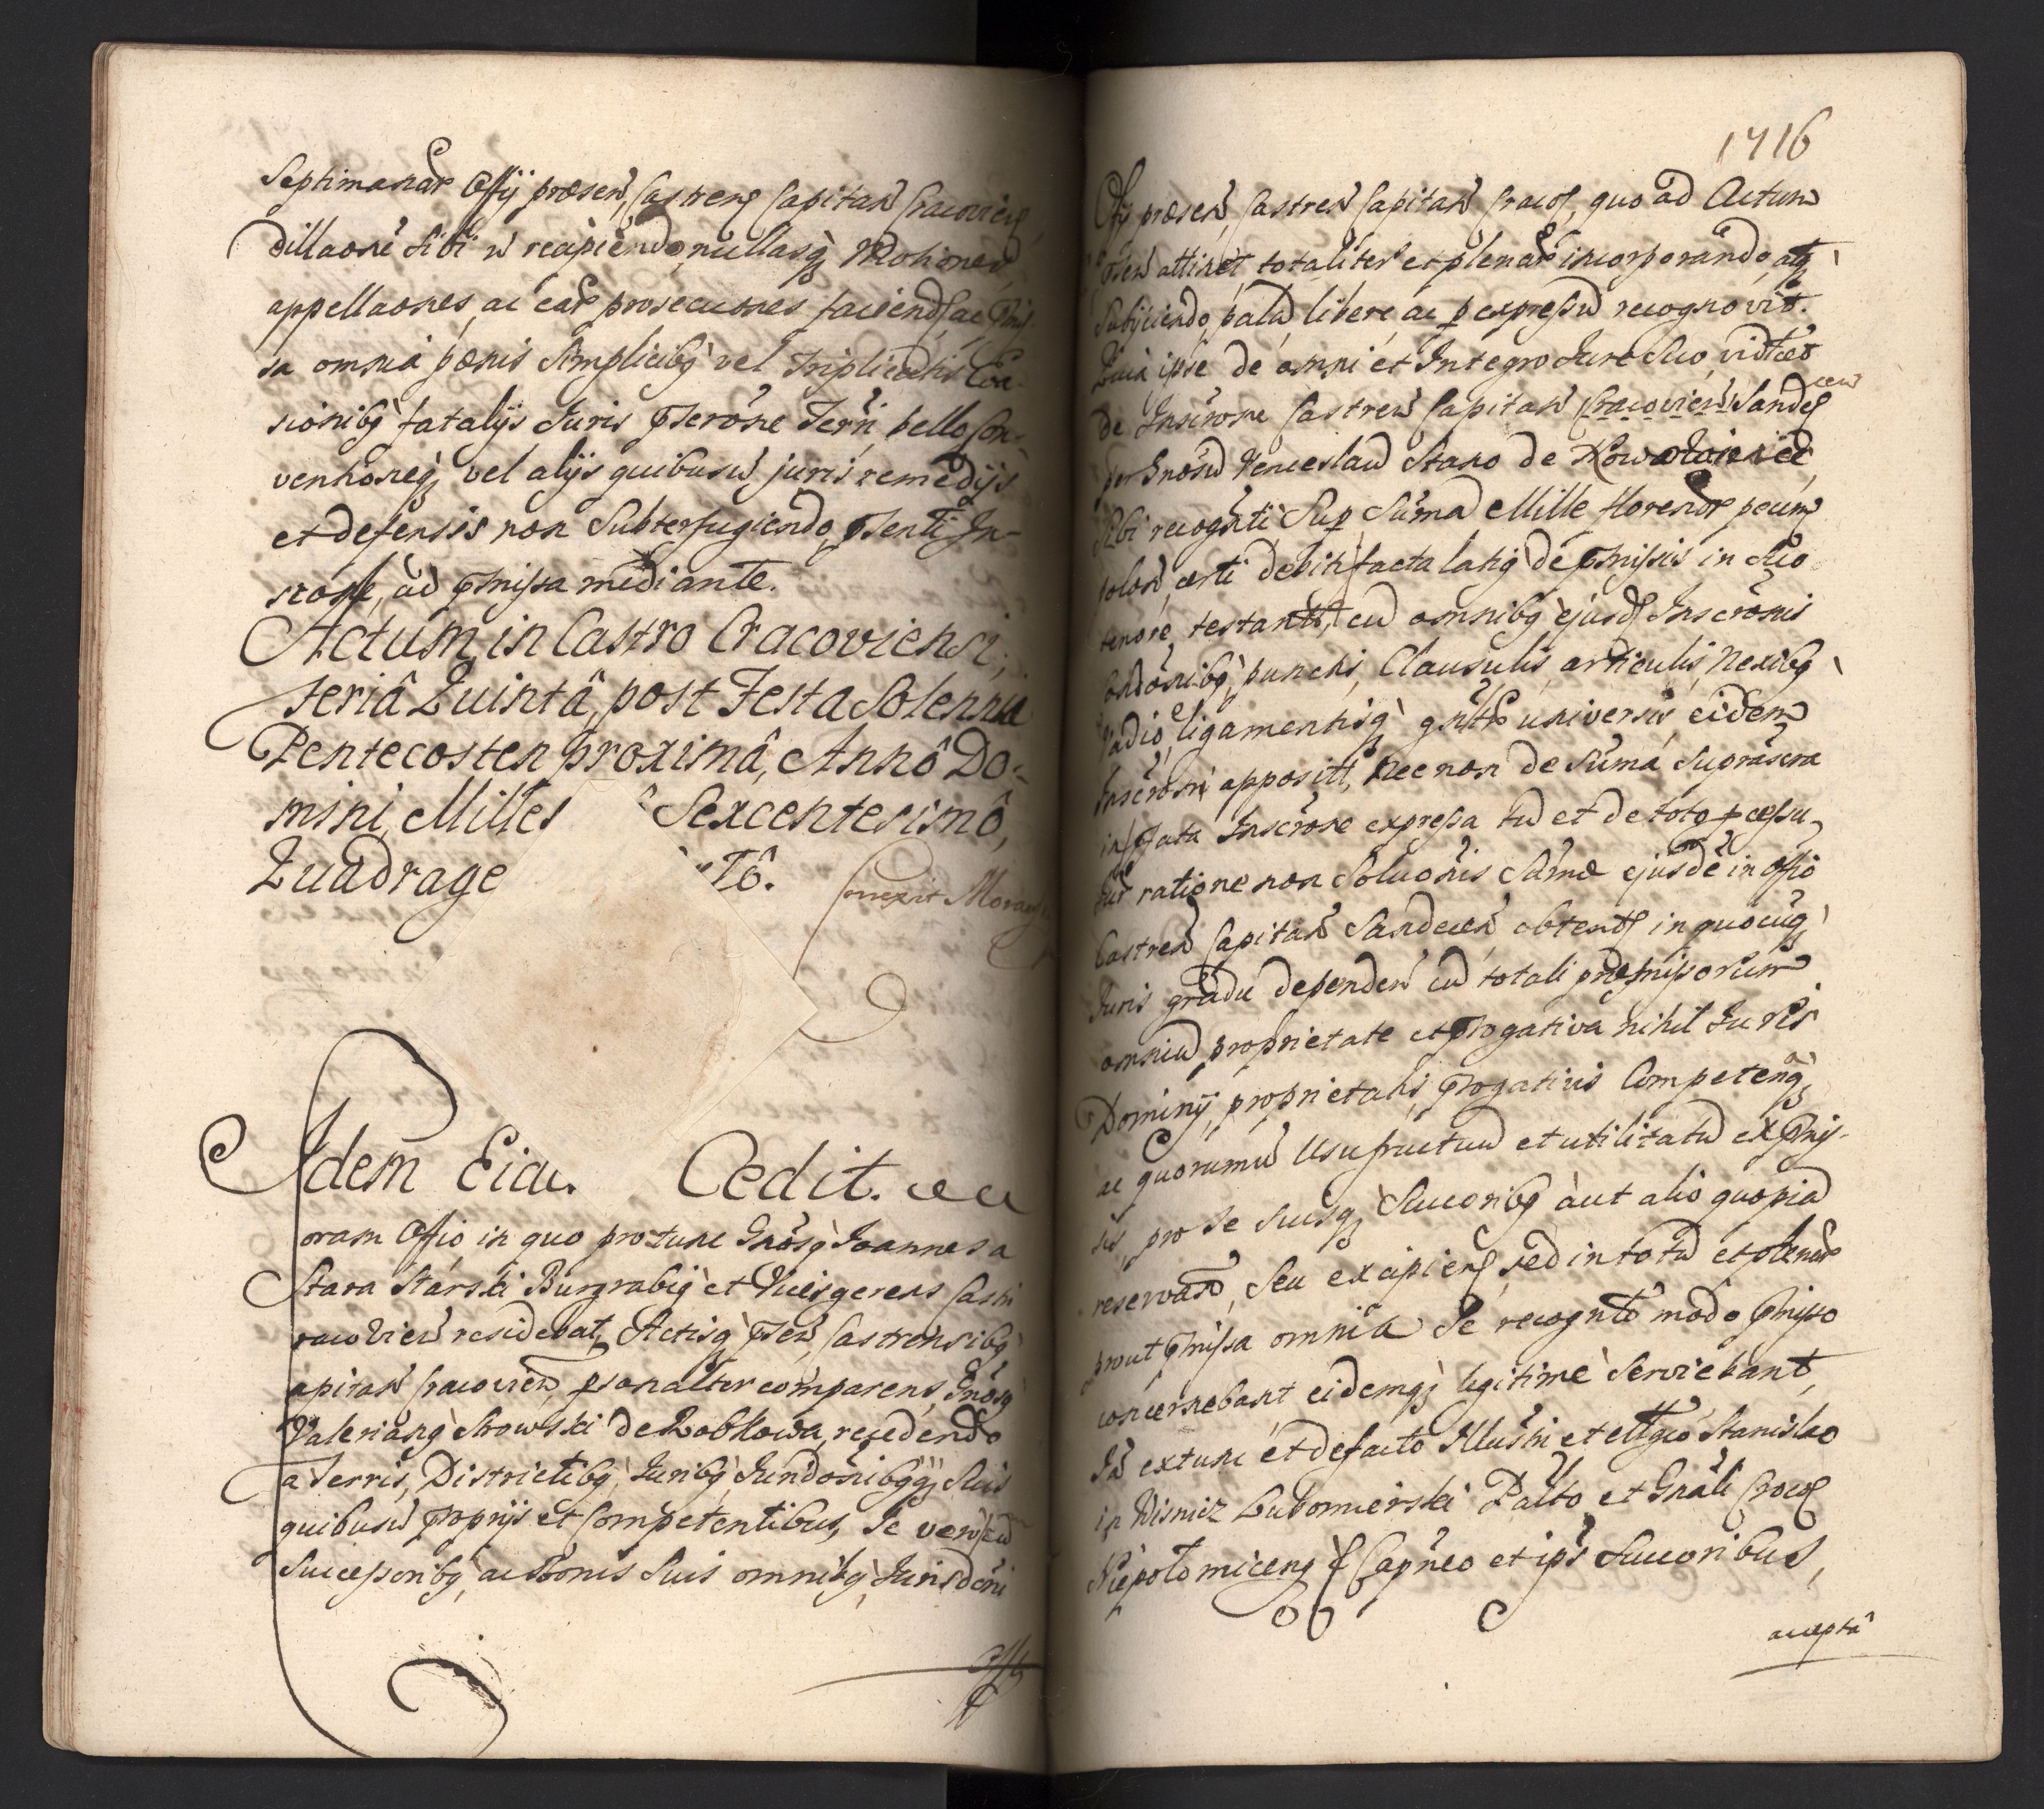 Septimanar Offij præsen, Castren Capitan Cracovien
dillaone sibi n recipiendo, nullasq Motiones
appellaones, ac ear prosecuones faciend, ac Pmis-
sa omnia pænis simplicibq vel triplicatis
sionibq fatalijs Juris Pserone Terri, bello Con-
ventioneq vel alijs quibusu juris remedijs
et defensis non Subterfugiendo, Psenti In-
scrone, ad Pmissa mediante.
Actum in Castro Cracoviensi,
feriâ Quintâ, post Festa Solennia
Pentecosten proximâ, Annô Do-
mini, Milles Sexcentesimô,
Quadrage Tô.
Conexit
Idem Eid. Cedit.
oram Offio, in quo protunc Gnosq Joannes a
Stara Starski Burgrabiq et Vicesgerens Castri
racovien residebat, Actisq Psen, Castrensibq
apitan Cracovien, psonaliter comparens, Gnosq
Valerianq Strowski de Lobkowa, recedendo
a Terris, Districtibq, Juribq, Jurisdonibqq Suis
quibusu Proprijs et Competentibus, Se vero cu
Successoribq, ac Bonis Suis omnibq, Jurisdoni
Offij
1716
Offij præsen, Castren Capitan Cracof, quo ad Actum
Psen attinet, totaliter et plenar incorporando, atq
Subijciendo, palad libere, ac p expressu recognovit.
Quia ipse de omni et Integro Jure Suo, vidtcet
de Inscrone Castren Capitan Cracovien Sandecen
per Gnosu Venceslau Stano de
Sibi recognti Sup Suma Mille florenor pecum
polon, certi debiti facta latiq de Pmissis in Suo
tenore, testantt, cu omnibq ejusd Inscronis
ondonibq, punctis, Clausulis, articulis, Nexibq
Vadio, ligamentisq gnlter universis, eidem
Inscroni appositt, Nec non de Suma, Suprascra
in Pfata Inscrone expressa tu et de toto pcessu
Jur ratione non Soluonis Sumæ ejusde in Offio
Castren Capitan Sandecen obtent in quocuq
Juris gradu dependen cu totali præmissorum
omniu proprietate et Progativa nihil Juris
Dominij, proprietatis, Progativis Competenq,
ac quorumu Usufructuu et utilitatu ex Pmis-
sis, pro Se Suisq Sucoribq aut alio quopia
reservan, Seu excipien, sed in totu et plenar
prout Pmissa omnia Se recognto modo Pmisso
concernebant eidemq legitime Serviebant,
Ja extunc et de facto Illustri et Mgco Stanislao
in Wisnicz Lubomierski Palto, et Gnali Crac
Niepolomicenq Capneo et ips Sucoribus,
accepta